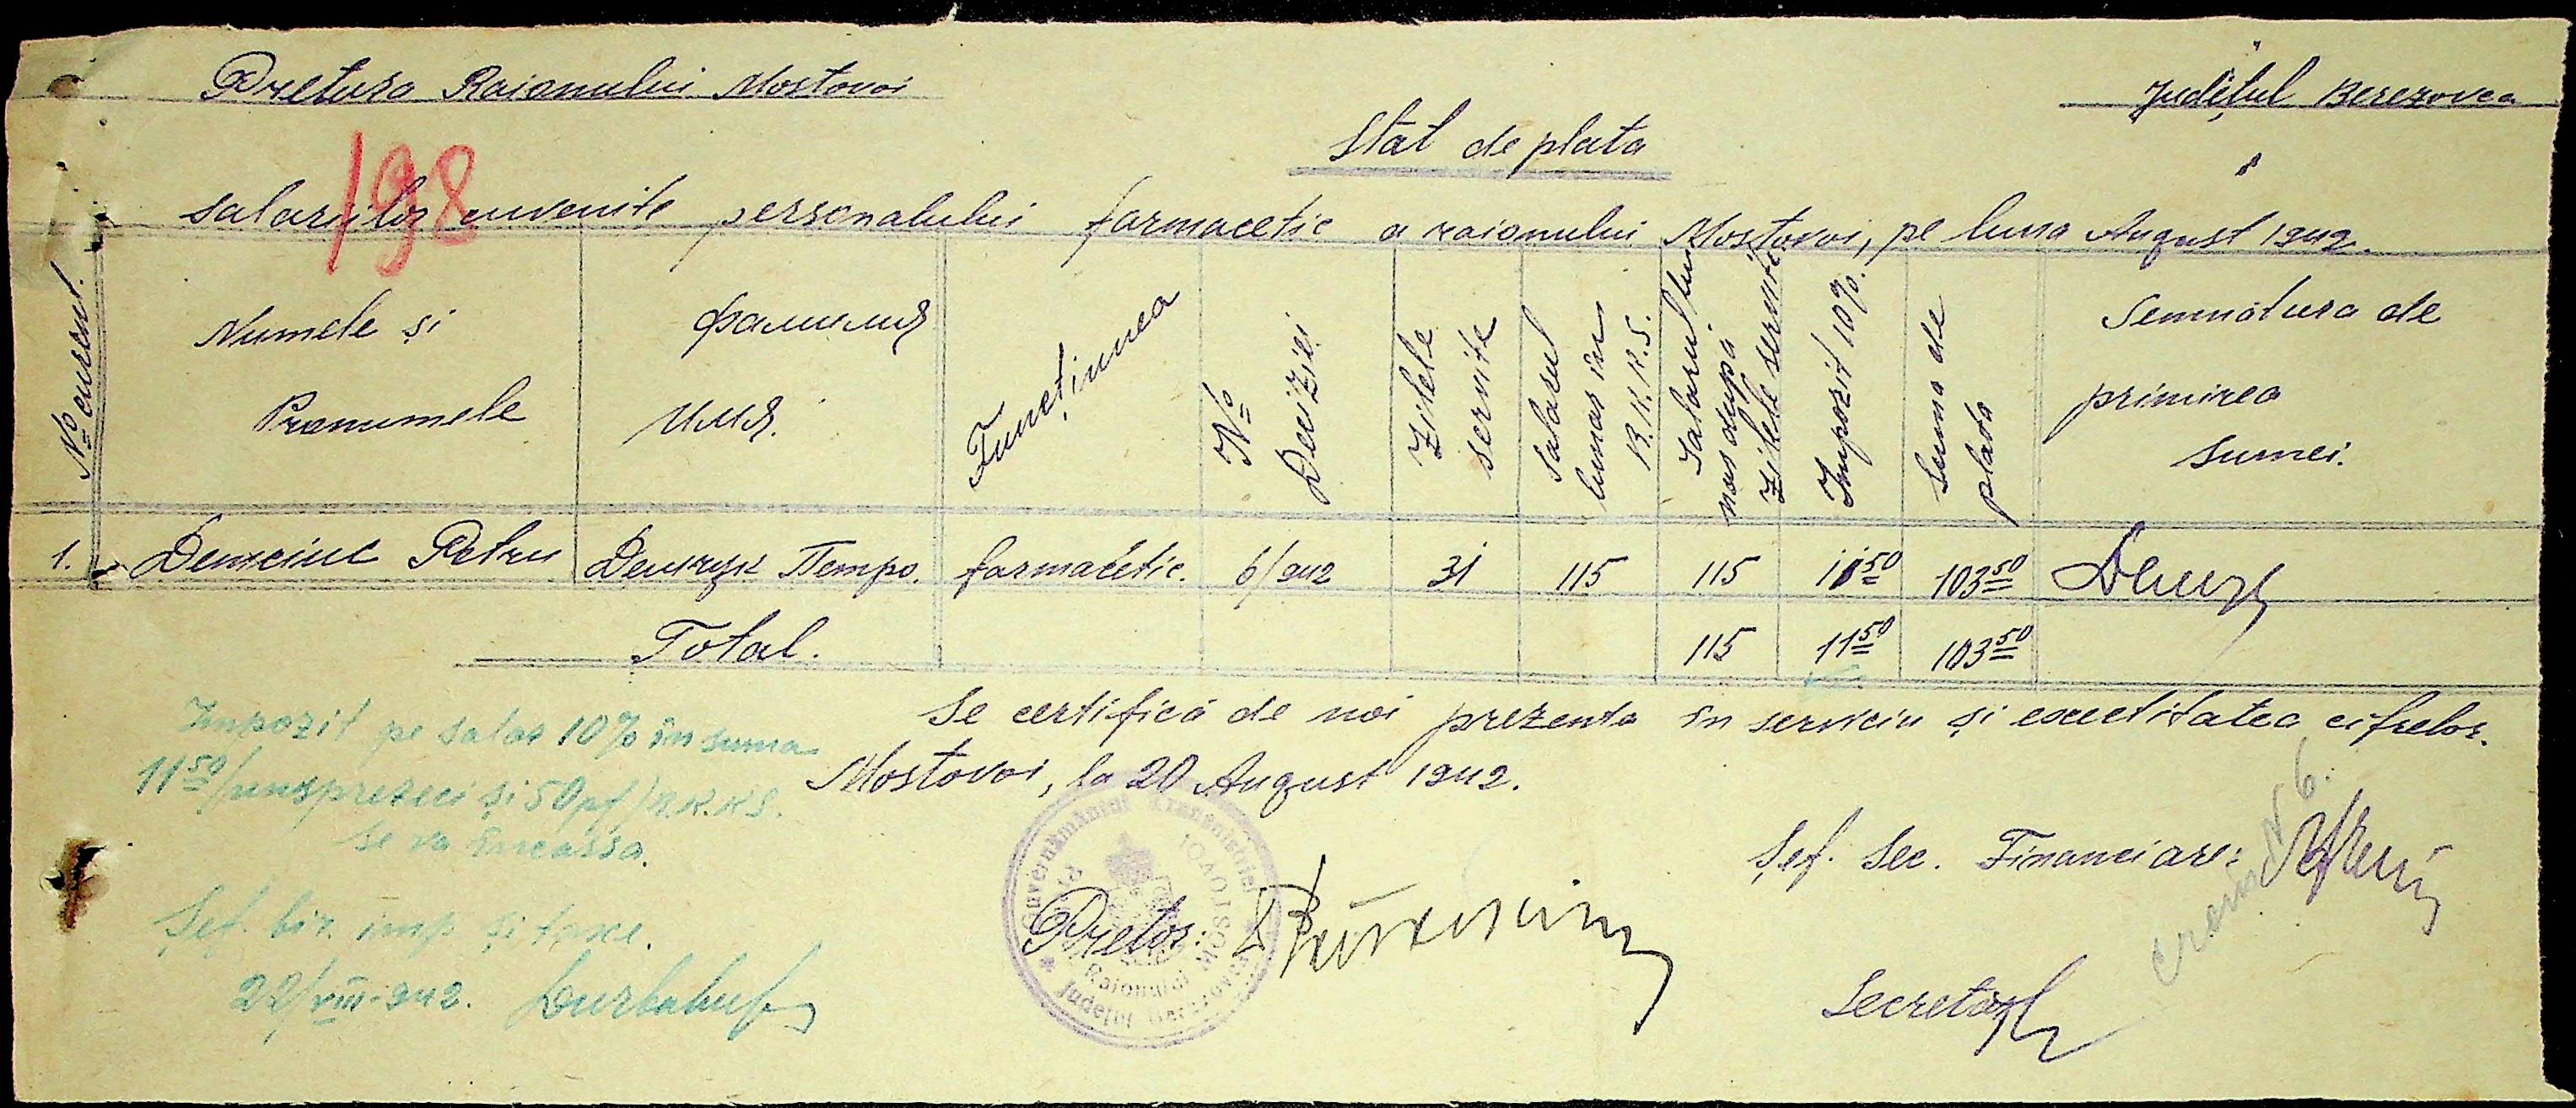 Pretura Raionului Mostovoi
Judeţul Berezovca
198
Stat de plata
salariilor cuvenite personalului farmacetic a raionului Mostovoi, pe luna August 1942.
No curent.
Numele și Pronumele
Фамилия Имя.
Funcţiunea
No Deciziei
Zilele servite
Salarul lunar în R.K.K.S.
Salarul lunar după Zilele servite
Impozit 10%.
Suma de plata
Semnatura de primirea sumei.
1. Demciuc Petru Демчук Петро. farmacetic. 6/942 31 115 115 11 50 103 50
Total. 115 11 50 103 50
Se certifică de noi prezenta în serviciu și exactitatea cifrelor.
Mostovoi, la 20 August 1942.
Impozit pe salar 10% în suma
11 50/unsprezeci și 50 pf/R.K.K.S.
se va încassa.
Șef. bir. imp. și taxe.
22/VIII-942.
Guvernământul Transnistriei
Raionului Mostovoi
Judeţul Berezovca
Pretor:
Șef. Sec. Financiare:
N 6.
Secretar